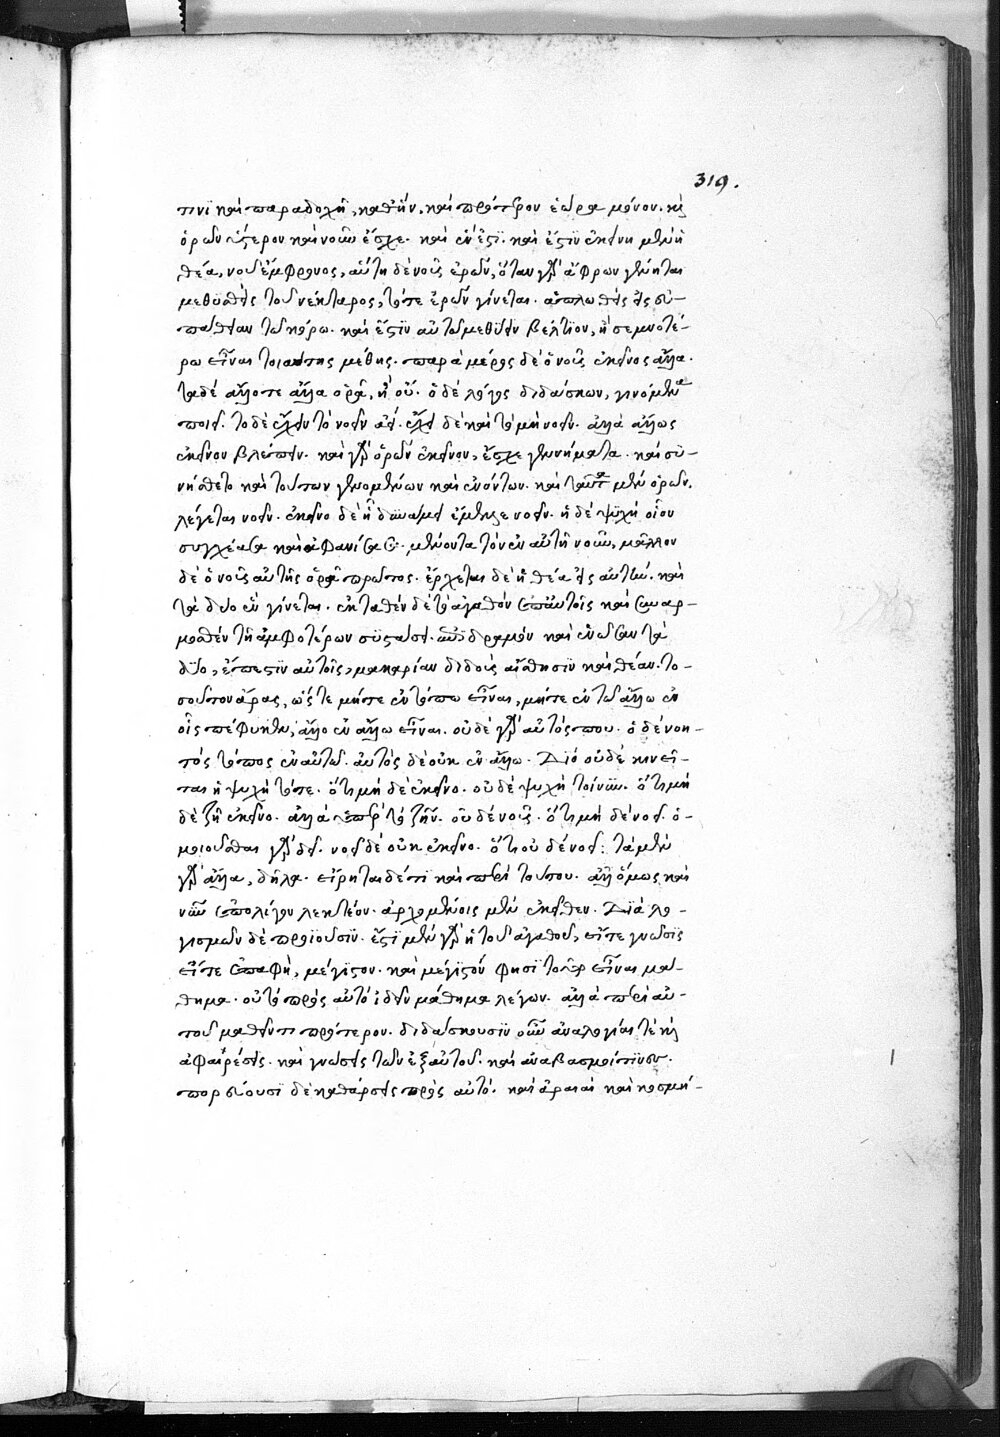 319.
τινὶ καὶ παραδοχῇ, καθ' ἣν, καὶ πρότερον ἑώρα μόνον. καὶ
ὁρῶν ὕστερον καὶ νοῦν ἔσχε. καὶ ἕν ἐστι. καὶ ἔστιν ἐκείνη μὲν ἡ
θέα, νοῦ ἔμφρονος, αὕτη δὲ νοῦς ἐρῶν, ὅταν γὰρ ἄφρων γένηται
μεθυσθεὶς τοῦ νέκταρος, τότε ἐρῶν γίνεται. ἁπλωθεὶς εἰς εὐ-
πάθειαν τῷ κόρῳ. καὶ ἔστιν αὐτῷ μεθύειν βέλτιον, ἢ σεμνοτέ-
ρῳ εἶναι τοιαύτης μέθης. παρὰ μέρος δὲ ὁ νοῦς ἐκεῖνος ἄλλα.
τὰ δὲ ἄλλοτε ἄλλα ὁρᾷ, ἢ οὔ. ὁ δὲ λόγος διδάσκων, γινόμενα
ποιεῖ. τὸ δὲ ἔχειν τὸ νοεῖν ἀεί. ἔχει δὲ καὶ τὸ μὴ νοεῖν. ἀλλὰ ἄλλως
ἐκεῖνον βλέπειν. καὶ γὰρ ὁρῶν ἐκεῖνον, ἔσχε γεννήματα. καὶ συ-
νῄσθετο καὶ τούτων γενομένων καὶ ἐνόντων. καὶ ταῦτα μὲν ὁρῶν.
λέγεται νοεῖν. ἐκεῖνο δὲ ᾗ δυνάμει ἔμελλε νοεῖν. ἡ δὲ ψυχὴ οἷον
συγχέασα καὶ ἀφανίσασα μένοντα τὸν ἐν αὐτῇ νοῦν, μᾶλλον
δὲ ὁ νοῦς αὐτῆς ὁρᾷ πρῶτος. ἔρχεται δὲ ἡ θέα εἰς αὐτὴν. καὶ
τὰ δύο ἓν γίνεται. ἐκταθὲν δὲ τὸ ἀγαθὸν ἐπ' αὐτοῖς καὶ συναρ-
μοσθὲν τῇ ἀμφοτέρων συστάσει. ἐπιδραμὸν καὶ ἑνῶσαν τὰ
δύο, ἔπεστιν αὐτοῖς, μακαρίαν διδοὺς αἴσθησιν καὶ θέαν. το-
σοῦτον ἄρας, ὥστε μήτε ἐν τόπῳ εἶναι, μήτε ἐν τῷ ἄλλῳ ἐν
οἷς πέφυκεν, ἄλλο ἐν ἄλλῳ εἶναι. οὐδὲ γὰρ αὐτός που. ὁ δὲ νοη-
τὸς τόπος ἐν αὐτῷ. αὐτὸς δὲ οὐκ ἐν ἄλλῳ. Διὸ οὐδὲ κινεῖ-
ται ἡ ψυχὴ τότε. ὅτι μὴ δὲ ἐκεῖνο. οὐδὲ ψυχὴ τοίνυν. ὅτι μὴ
δὲ ζῇ ἐκεῖνο. ἀλλὰ ὑπὲρ τὸ ζῆν. οὐδὲ νοῦς. ὅτι μὴ δὲ νοεῖ. ὁ-
μοιοῦσθαι γὰρ δεῖ. νοεῖ δὲ οὐκ ἐκεῖνο. ὅτι οὐδὲ νοεῖ: τὰ μὲν
γὰρ ἄλλα, δῆλα. εἴρηται δέ τι καὶ περὶ τούτου. ἀλλ' ὅμως καὶ
νῦν ἐπ' ὀλίγον λεκτέον. ἀρχομένοις μὲν ἐκεῖθεν. Διὰ λο-
γισμῶν δὲ προϊοῦσιν. ἔστι μὲν γὰρ ἡ τοῦ ἀγαθοῦ, εἴτε γνῶσις
εἴτε ἐπαφὴ, μέγιστον. καὶ μέγιστόν φησι τοῦτ' εἶναι μά-
θημα. οὐ τὸ πρὸς αὐτὸ ἰδεῖν μάθημα λέγων. ἀλλὰ περὶ αὐ-
τοῦ μαθεῖν τι πρότερον. διδάσκουσιν οὖν ἀναλογίαι τὲ καὶ
ἀφαιρέσεις. καὶ γνώσεις τῶν ἐξ αὐτοῦ. καὶ ἀναβασμοί τινες.
πορεύουσι δὲ καθάρσεις πρὸς αὐτὸ. καὶ ἀρεταὶ καὶ κοσμή-